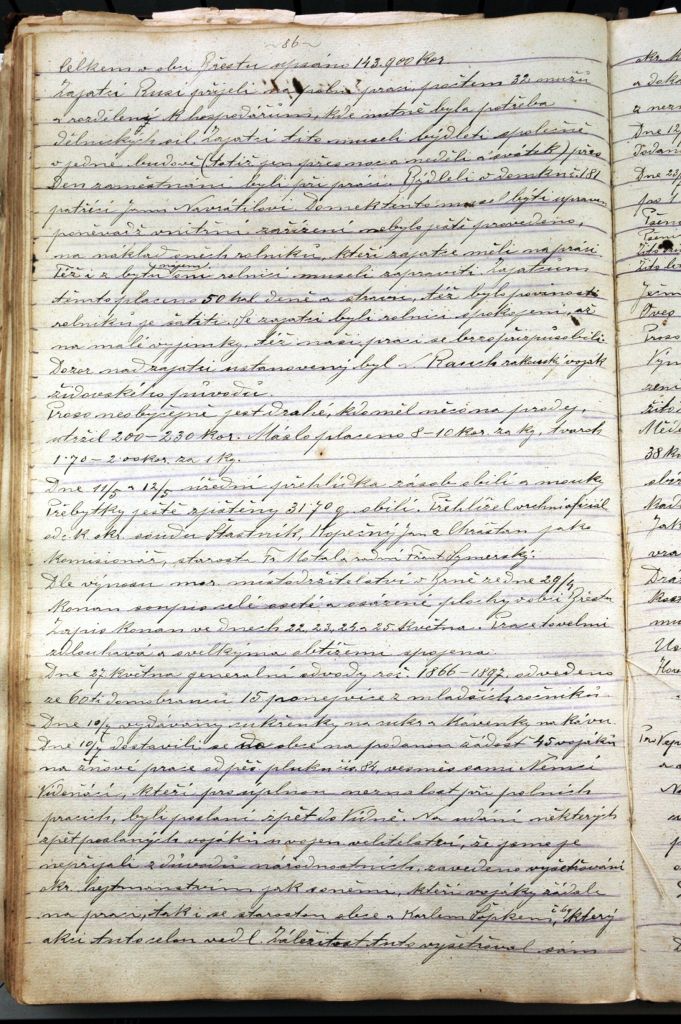 ~ 86 ~
Celkem v obci Břestu upsáno 143.900 Kor.
Zajatci Rusi přijeli na polní práci počtem 32 mužů
a rozděleny k hospodářům, kde nutně byla potřeba
dělnických sil. Zajatci tito museli býdleti společně
v jedné budově (totiž jen přes noc a neděli a svátek) přes
Den zaměstnáni byli při práci. Býdleli v domku čís 181
patřící Janu Navrátilovi. Domek tento musel býti upraven
poněvadž vnitřní zařízení nebylo ještě provedeno,
na náklad oněch rolníků, kteří zajatce měli na práci.
Též i z bytu oni rolníci museli zapraviti. Zajatcům
těmto placeno 50 hal denně a stravu, též bylo povinností
rolníků je šatiti. Se zajatci byli rolníci spokojeni, až
na malé vyjímky, též naší práci se brzo přizpůsobili.
Dozor nad zajatci ustanovený byl v. Rauch rakouský voják
židovského původu.
Proso neobyčejně jest drahé, kdo měl něco na prodej,
utržil 200 – 230 Kor. Máslo placeno 8–10 kor. za kg, tvaroh
1·70 – 2 kor. za 1 kg.
Dne 11/5 a 12/5 úřední přehlídka zásob obilí a mouky
Přebytky ještě zjištěny 31·70 q obilí. Přehlížel vrchní oficiál
od c. k. okr. soudu Šťastník, Kopečný Jan z Chrášťan jako
komisionář, starosta Fr. Motal a radní Frant. Symerský.
Dle výnosu mor. místodržitelství v Brně ze dne 29/4
Konán soupis celé oseté a osázené plochy v obci Břestu
Zápis konán ve dnech 22, 23, 24 a 25. Května. Práce to velmi
zdlouhavá a s velkýma obtížemi spojena.
Dne 27. května generální odvody roč. 1866–1897, odvedeno
ze 60ti domobranců 15 ponejvíce z mladších ročníků.
Dne 10/7 vydávány cukřenky na cukr a kávenky na kávu
Dne 10/7 dostavili se do obce na podanou žádost 45 vojáků
na žňové práce od pěš. pluku čís 84, vesměs sami Němci
Vídeňáci, kteří pro úplnou neznalost při polních
pracích, byli posláni zpět do Vídně. Na udání některých
zpět poslaných vojáků u vojen. velitelství, že jsme je
nepřijali z důvodů národnostních, zavedeno vyšetřování
okr. hejtmanstvím jak s oněmi, kteří vojáky žádali
na práci, tak i se starostou obce a Karlem Töpkem, který
akci tuto celou vedl. Záležitost tuto vyšetřoval sám